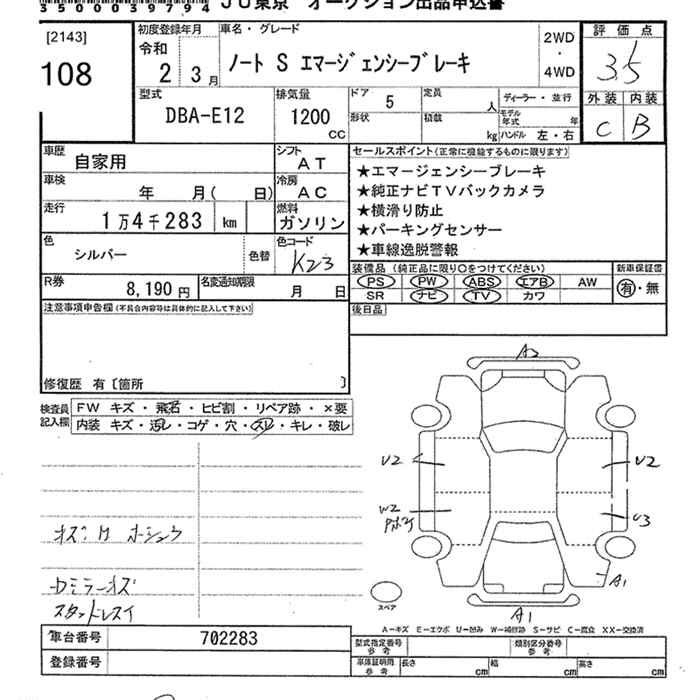 35000039794 JU東京 オークション出品申込書
[2143]
108
初度登録年月
令和
2 3月
車名・グレード
ノート S エマージェンシーブレーキ
2WD
・
4WD
評価点
3.5
外装 内装
C B
型式
DBA-E12
排気量
1200
CC
ドア 5
形状
定員 人
積載 kg
ディーラー・並行
モデル年式 年
ハンドル 左・右
車歴 自家用
シフト AT
車検 年 月( 日)
冷房 AC
走行 1万4千283 km
燃料 ガソリン
色 シルバー
色替
色コード K23
R券 8,190円
名変通知期限 月 日
セールスポイント(正常に機能するものに限ります)
★エマージェンシーブレーキ
★純正ナビTVバックカメラ
★横滑り防止
★パーキングセンサー
★車線逸脱警報
装備品(純正品に限り〇をつけてください)
PS PW ABS エアB AW
SR ナビ TV カワ
新車保証書
有・無
後日品
注意事項申告欄(不具合内容等は具体的に記入して下さい)
修復歴 有〔箇所 〕
検査員記入欄
FW キズ・飛石・ヒビ割・リペア跡・×要
内装 キズ・汚レ・コゲ・穴・スレ・キレ・破レ
A2
U2
U2
W2
U3
A1
A1
スペア
スタットレスイ
A－キズ E－エクボ U－凹み W－補修跡 S－サビ C－腐食 XX－交換済
車台番号 702283
登録番号
型式指定番号参考
類別区分番号参考
車庫証明用参考 長さ cm 幅 cm 高さ cm